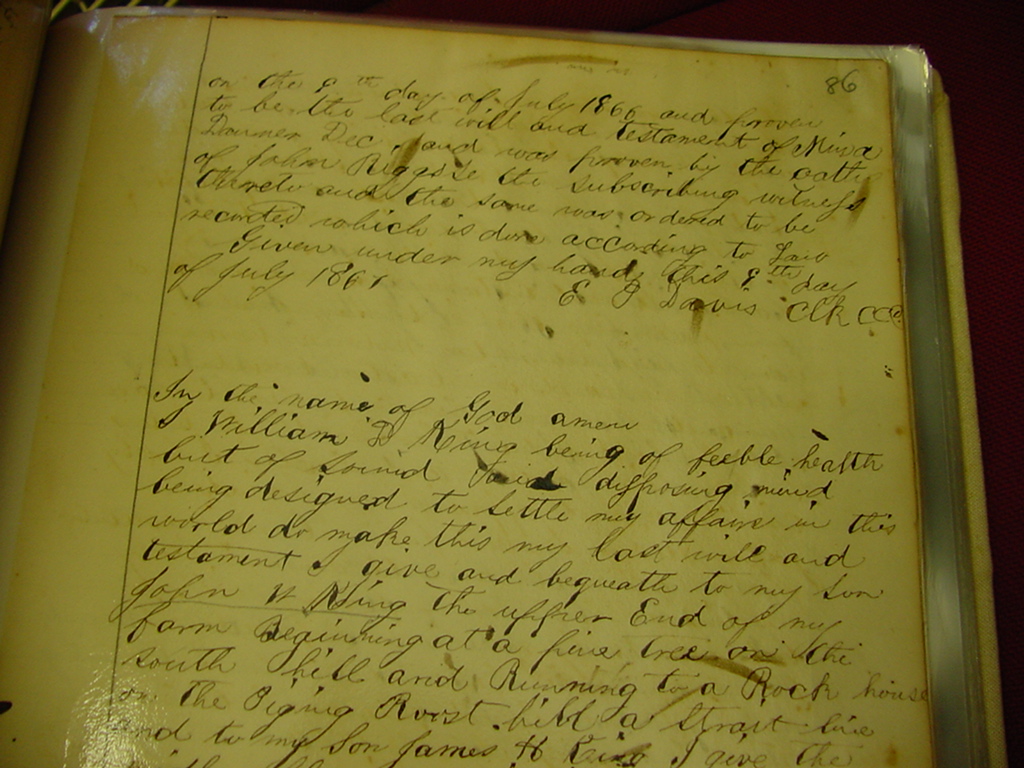 86
on the 9th day of July 1866 and proven
to be the last will and testament of Mirra
Dec and was proven by the oath
of John the subscribing witness
thereto and the same was ordered to be
recorded which is done according to Law
Given under my hand this 9th day
of July 1861
E J Davis Clk CCC
In the name of God amen
I William D King being of feeble health
but of sound disposing mind
being designed to settle my affairs in this
world do make this my last will and
testament I give and bequeath to my son
John W King the upper End of my
farm Beginning at a pine tree on the
south hill and Running to a Rock house
on the Piging Roost hill a Strait line
and to my Son James H King I give the